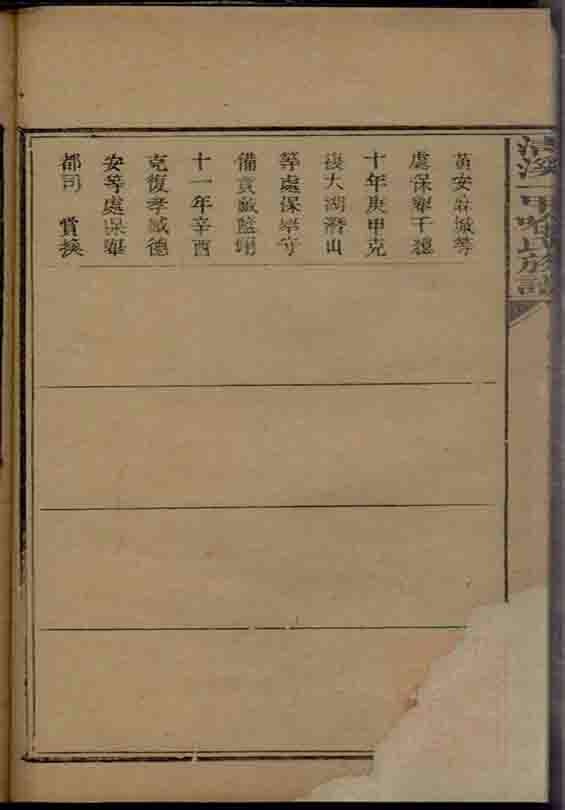 黃安麻城等
處保舉千總
十年庚申克
復太湖潛山
等處保舉守
備賞戴藍翎
十一年辛酉
克復孝感德
安等處保舉
都司 賞換